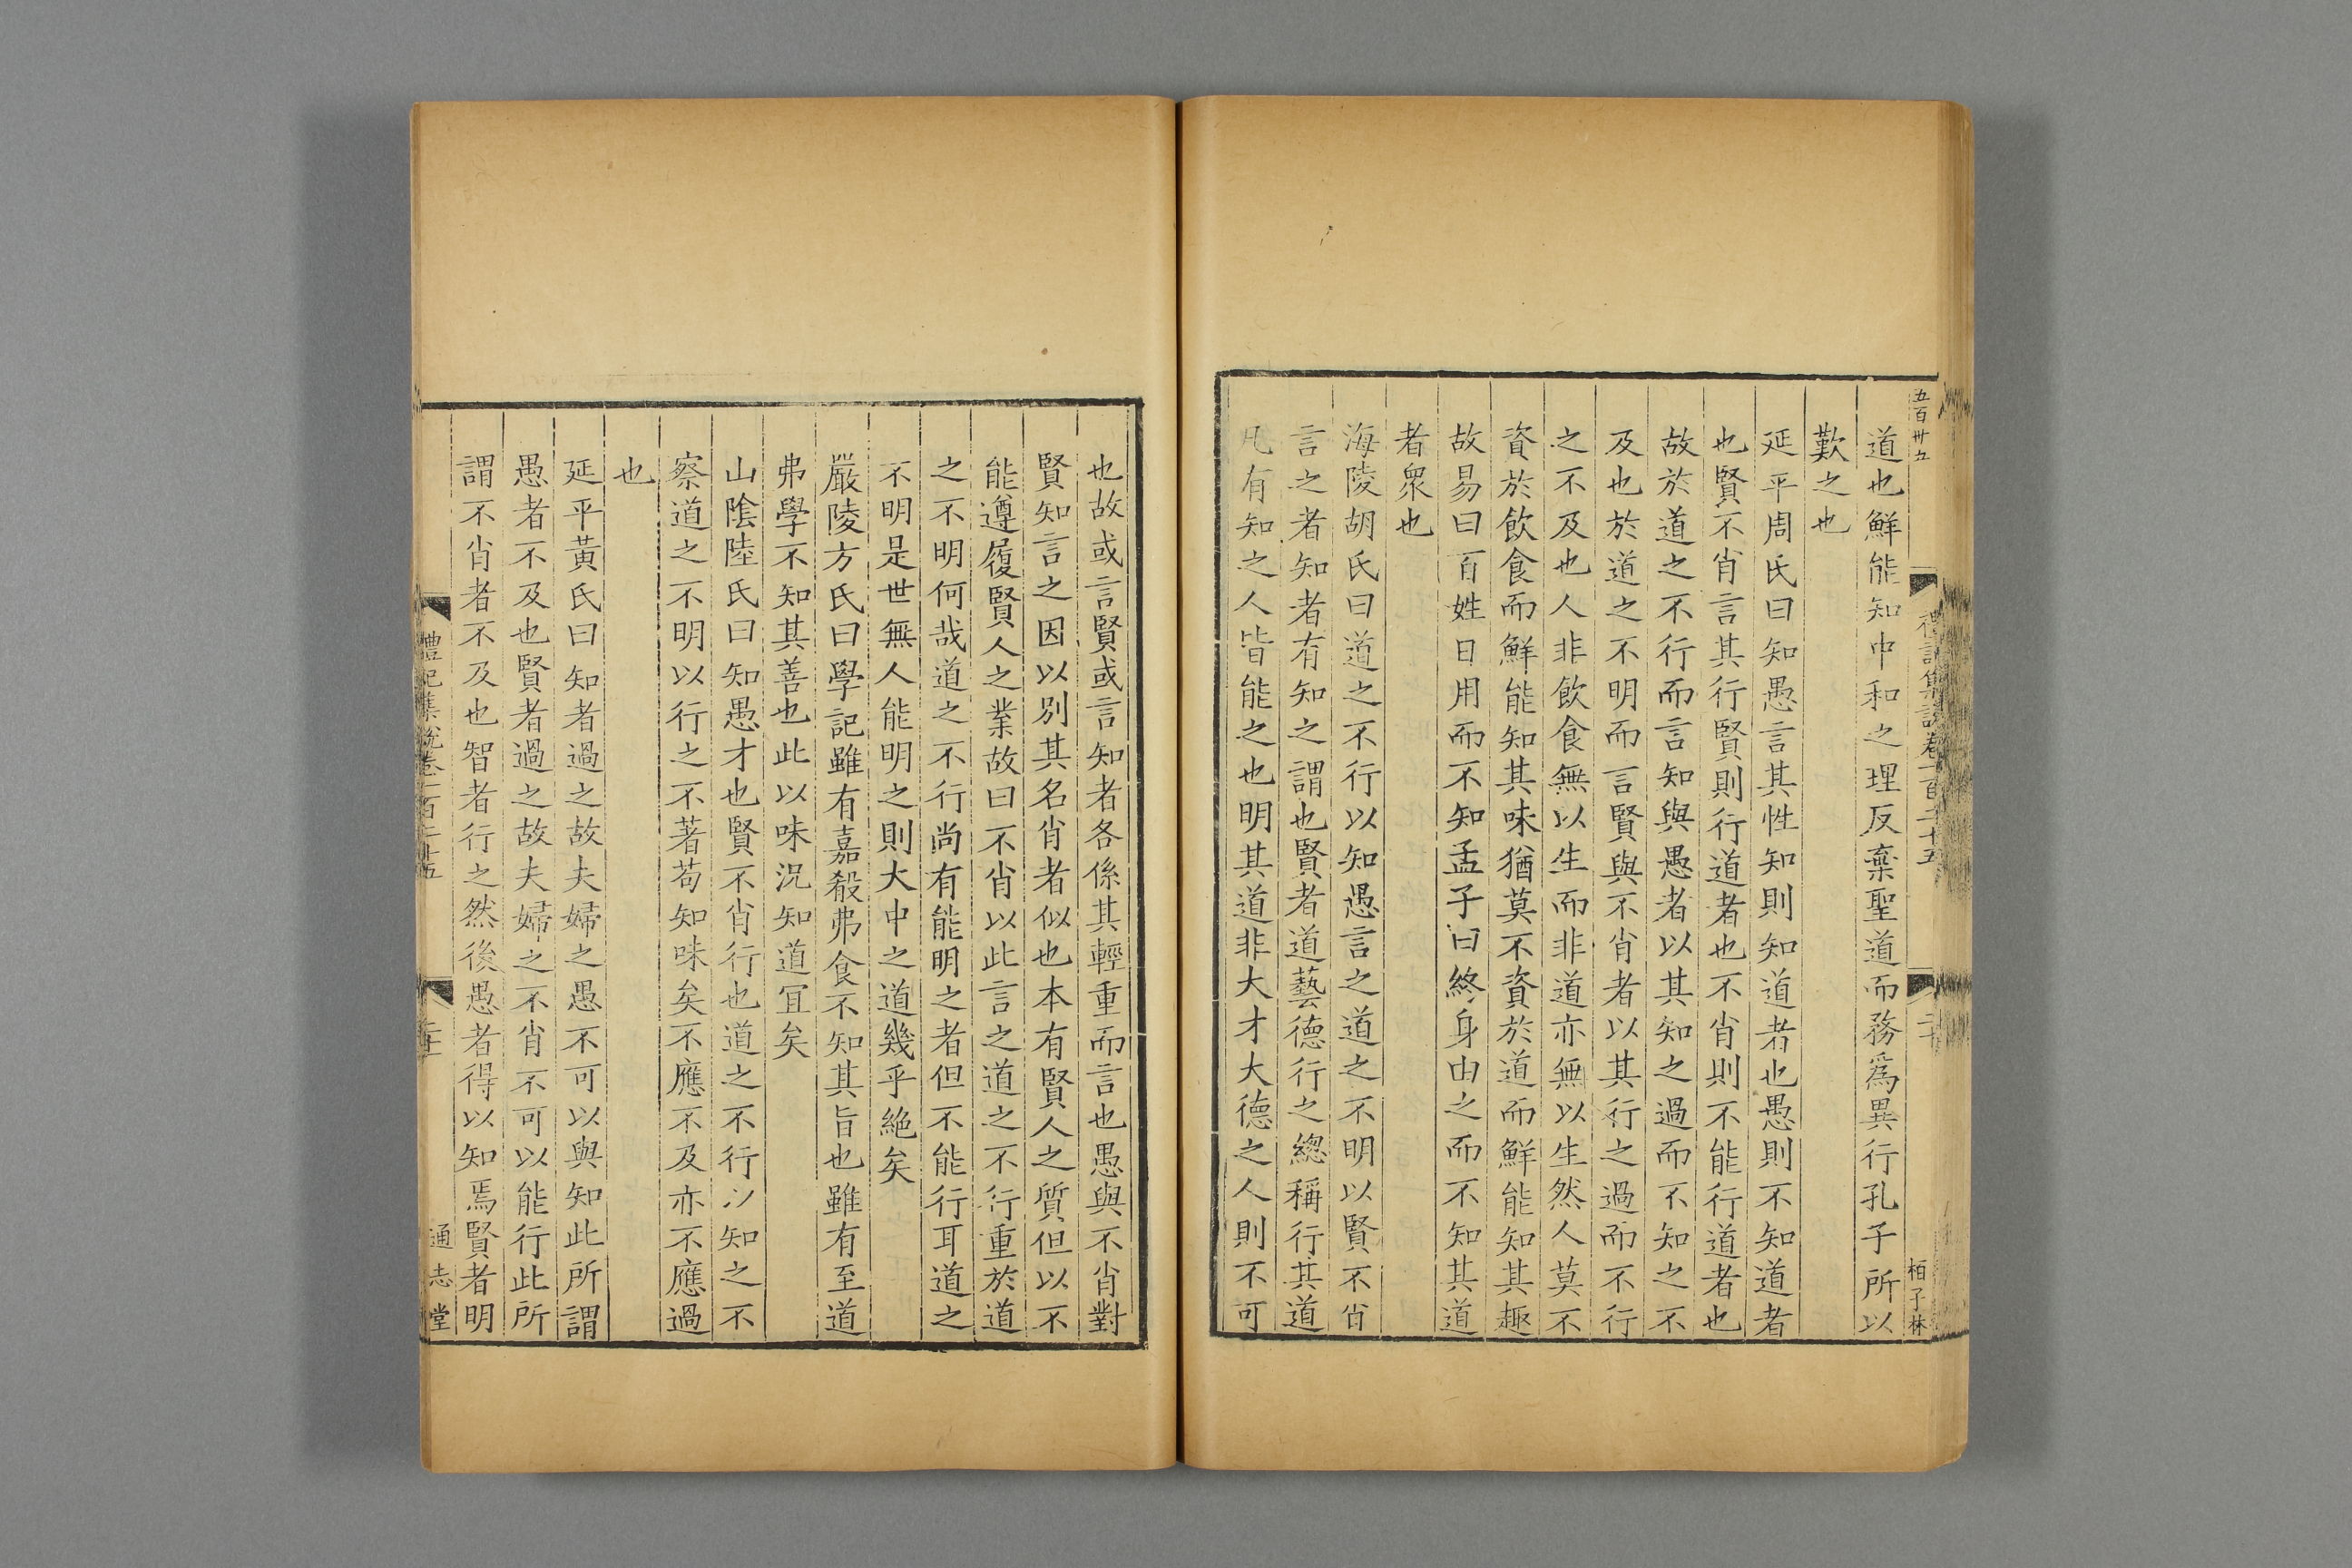 五百卅九
禮記集說卷一百二十五
二十
栢子林
道也鮮能知中和之理反棄聖道而務爲異行孔子所以
歎之也
延平周氏曰知愚言其性知則知道者也愚則不知道者
也賢不肖言其行賢則行道者也不肖則不能行道者也
故於道之不行而言知與愚者以其知之過而不知之不
及也於道之不明而言賢與不肖者以其行之過而不行
之不及也人非飲食無以生而非道亦無以生然人莫不
資於飲食而鮮能知其味猶莫不資於道而鮮能知其趣
故易曰百姓日用而不知孟子曰終身由之而不知其道
者衆也
海陵胡氏曰道之不行以知愚言之道之不明以賢不肖
言之者知者有知之謂也賢者道藝德行之總稱行其道
凡有知之人皆能之也明其道非大才大德之人則不可
也故或言賢或言知者各係其輕重而言也愚與不肖對
賢知言之因以別其名肖者似也本有賢人之質但以不
能遵履賢人之業故曰不肖以此言之道之不行重於道
之不明何哉道之不行尚有能明之者但不能行耳道之
不明是世無人能明之則大中之道幾乎絶矣
嚴陵方氏曰學記雖有嘉殽弗食不知其旨也雖有至道
弗學不知其善也此以味況知道冝矣
山陰陸氏曰知愚才也賢不肖行也道之不行以知之不
察道之不明以行之不著苟知味矣不應不及亦不應過
也
延平黃氏曰知者過之故夫婦之愚不可以與知此所謂
愚者不及也賢者過之故夫婦之不肖不可以能行此所
謂不肖者不及也智者行之然後愚者得以知焉賢者明
禮記集說卷一百二十五
二十
通志堂